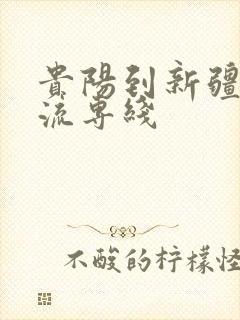 貴陽到新疆
流專綫
不酸的柠檬怪